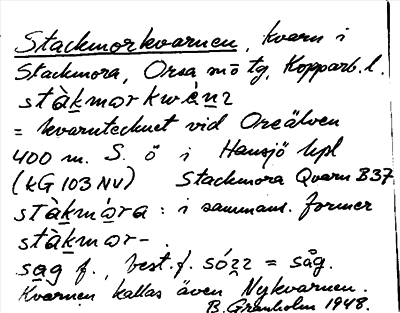 Stackmorkvarnen, kvarn i
Stackmora, Orsa sn o tg, Kopparb. l.
stàkmorkwènz
= kvarntecknet vid Oreälven
400 m. S. ö i Hansjö hpl
(kG 103 NV) Stackmora Qvarn B37
stàkmòra : i sammans. former
stàkmor-.
sag f., best. f. sózz = såg.
Kvarnen kallas även Nykvarnen.
B. Granholm 1948.